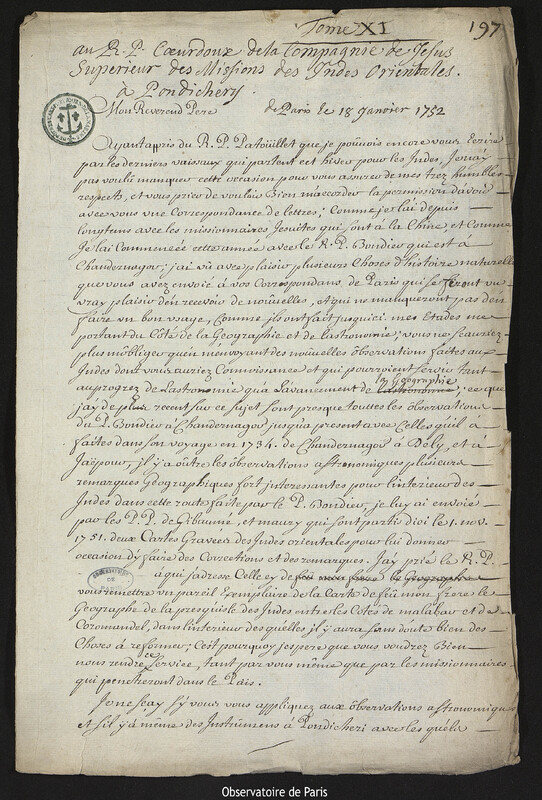 Tome XI
197
au R. P. Cœurdoux de la Compagnie de Jesus
Superieur des Missions des Indes Orientales.
à Pondichery.
Mon Reverend Pere
de Paris le 18 Janvier 1752
Ayant apris du R. P. Patoüillet que je pouvois encore vous Ecrire
par les derniers vaisseaux qui partent cet hiver pour les Indes, Je n'ay
pas voulu manquer cette occasion pour vous assurer de mes trez humbles
respects, et vous prier de vouloir Bien m'accorder la permission d'avoir
avec vous une Correspondance de lettres; Comme je l'ai depuis
longtems avec les missionnaires Jesuites qui sont à la Chine, et Comme
Je l'ai Commencée cette année avec le R. P. Boudier qui est à
Chandernagor; j'ai vû avec plaisir plusieurs Choses d'histoire naturelle
que vous avez envoié à vos Correspondans de Paris qui se feront un
vray plaisir d'en recevoir de nouvelles, et qui ne manqueront pas d'en
faire un bon usage, Comme ils ont fait jusqu'ici. mes Etudes me
portant du Côté de la Geographie et de l'astronomie; vous ne scauriez
plus m'obliger qu'en m'envoyant des nouvelles observations faites aux
Indes dont vous auriez Connoissance et qui pourroient servir tant
au progrez de l'astronomie qu'à l'avancement de la Geographie; ce que
j'ay de plus recent sur ce sujet sont presque touttes les observations
du P. Boudier à Chandernagor jusqu'à present avec Celles qu'il a
faites dans son voyage en 1734. de Chandernagor à Dely, et à
Jaëpour, il y a outre les observations astronomiques plusieurs
remarques Geographiques fort interessantes pour l'interieur des
Indes dans cette route faite par le P. Boudier, je luy ai envoié
par les P. P. de Gibaumé, et maury qui sont partis d'ici le 1. nov.
1751. deux Cartes Gravées des Indes orientales pour lui donner
occasion d'y faire des Corrections et des remarques. J'ay prié le R. P.
à qui j'adresse Celle cy de
vous remettre un pareil Exemplaire de la Carte de feu mon frere le
Geographe de la presqu'isle des Indes entre les Cotes de malabar et de
Coromandel, dans l'interieur des quelles il y aura sans doute bien des
Choses à reformer; C'est pourquoy j'espere que vous voudrez Bien
nous rendre ce service, tant par vous même que par les missionnaires
qui penetreront dans le Païs.
Je ne sçay s'y vous vous appliquez aux observations astronomiques
et s'il y a même des Instrumens à Pondicheri avec les quels
Observatoire de Paris